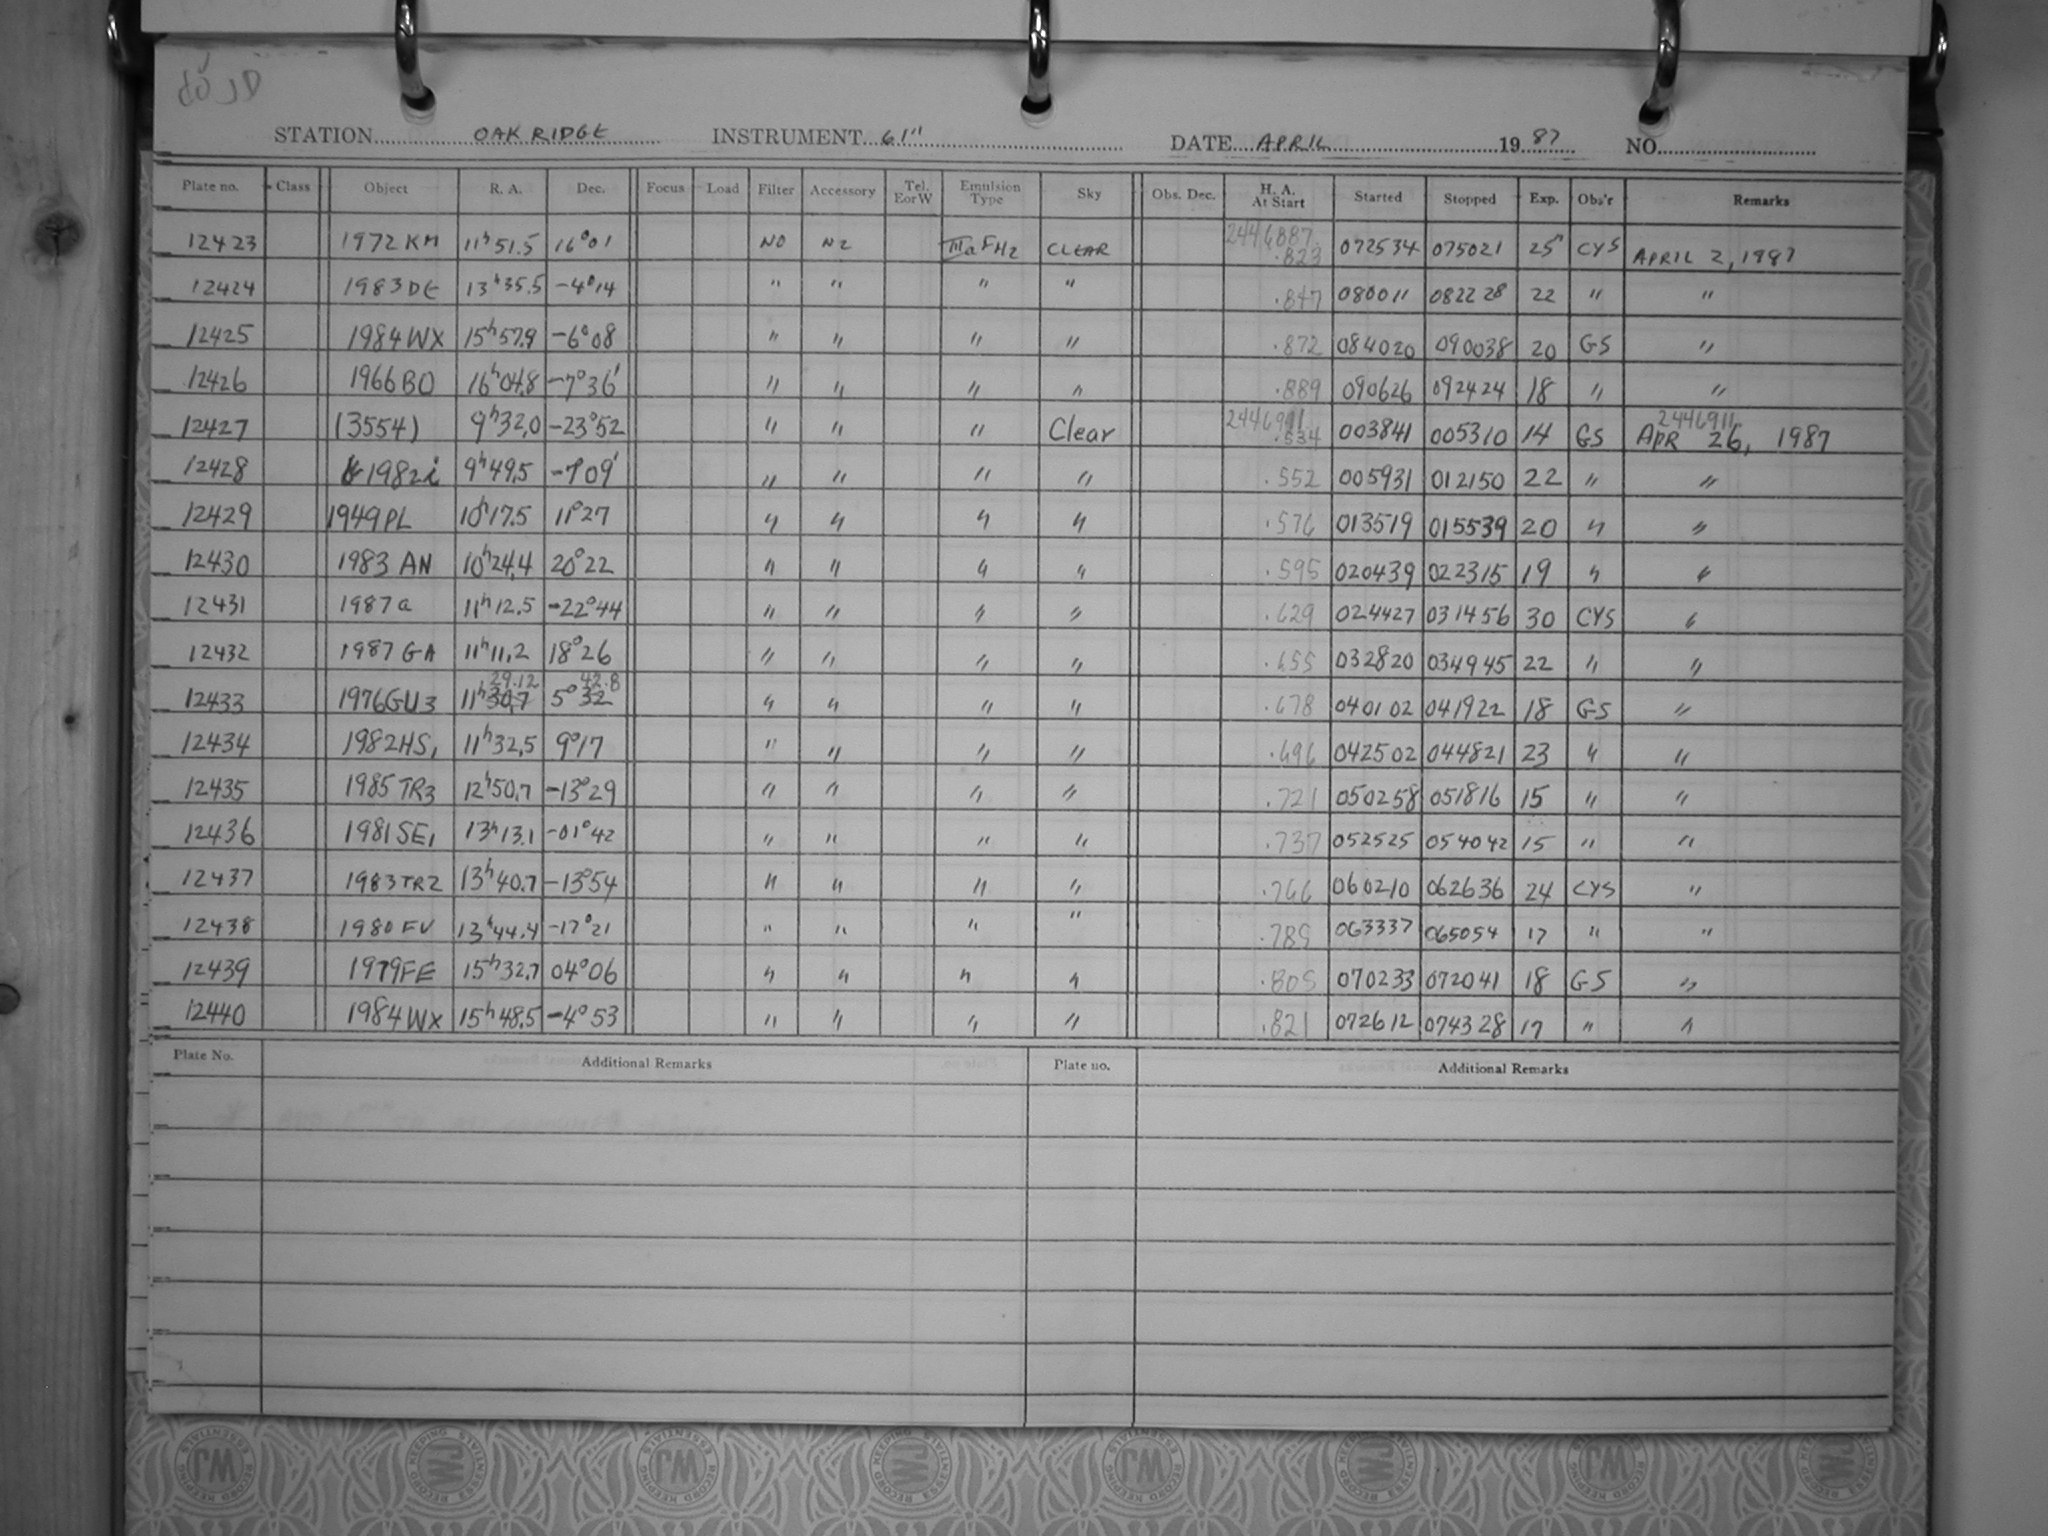 do JD
STATION OAK RIDGE INSTRUMENT 61" DATE APRIL 19 87 NO.
Plate no. Class Object R. A. Dec. Focus Load Filter Accessory Tel. EorW Emulsion Type Sky Obs. Dec. H. A. At Start Started Stopped Exp. Obs'r Remarks
12423 1972 KM 11h 51.5 16°01 NO N2 IIIaF H2 CLEAR 2446887. .823 072534 075021 25 CYS APRIL 2, 1987
12424 1983 DE 13h 35.5 -4°14 " " " " .847 080011 082228 22 " "
12425 1984 WX 15h 57.9 -6°08 " " " " .872 084020 090038 20 GS "
12426 1966 BO 16h 04.8 -7°36' " " " " .889 090626 092424 18 " "
12427 (3554) 9h 32.0 -23°52 " " " Clear 2446911 .534 003841 005310 14 GS 2446911 APR 26, 1987
12428 1982i 9h 49.5 -7°09' " " " " .552 005931 012150 22 " "
12429 1949 PL 10h 17.5 11°27 " " " " .576 013519 015539 20 " "
12430 1983 AN 10h 24.4 20°22 " " " " .595 020439 022315 19 " "
12431 1987a 11h 12.5 -22°44 " " " " .629 024427 031456 30 CYS "
12432 1987 GA 11h 11.2 18°26 " " " " .655 032820 034945 22 " "
12433 1976 GU3 11h 30.7 29.12 5°32 42.8 " " " " .678 040102 041922 18 GS "
12434 1982 HS1 11h 32.5 9°17 " " " " .696 042502 044821 23 " "
12435 1985 TR3 12h 50.7 -13°29 " " " " .721 050258 051816 15 " "
12436 1981 SE1 13h 13.1 -01°42 " " " " .737 052525 054042 15 " "
12437 1983 TR2 13h 40.7 -13°54 " " " " .766 060210 062636 24 CYS "
12438 1980 FV 13h 44.4 -17°21 " " " " .789 063337 065054 17 " "
12439 1979 FE 15h 32.7 04°06 " " " " .805 070233 072041 18 GS "
12440 1984 WX 15h 48.5 -4°53 " " " " .821 072612 074328 17 " "
Plate No. Additional Remarks Plate no. Additional Remarks